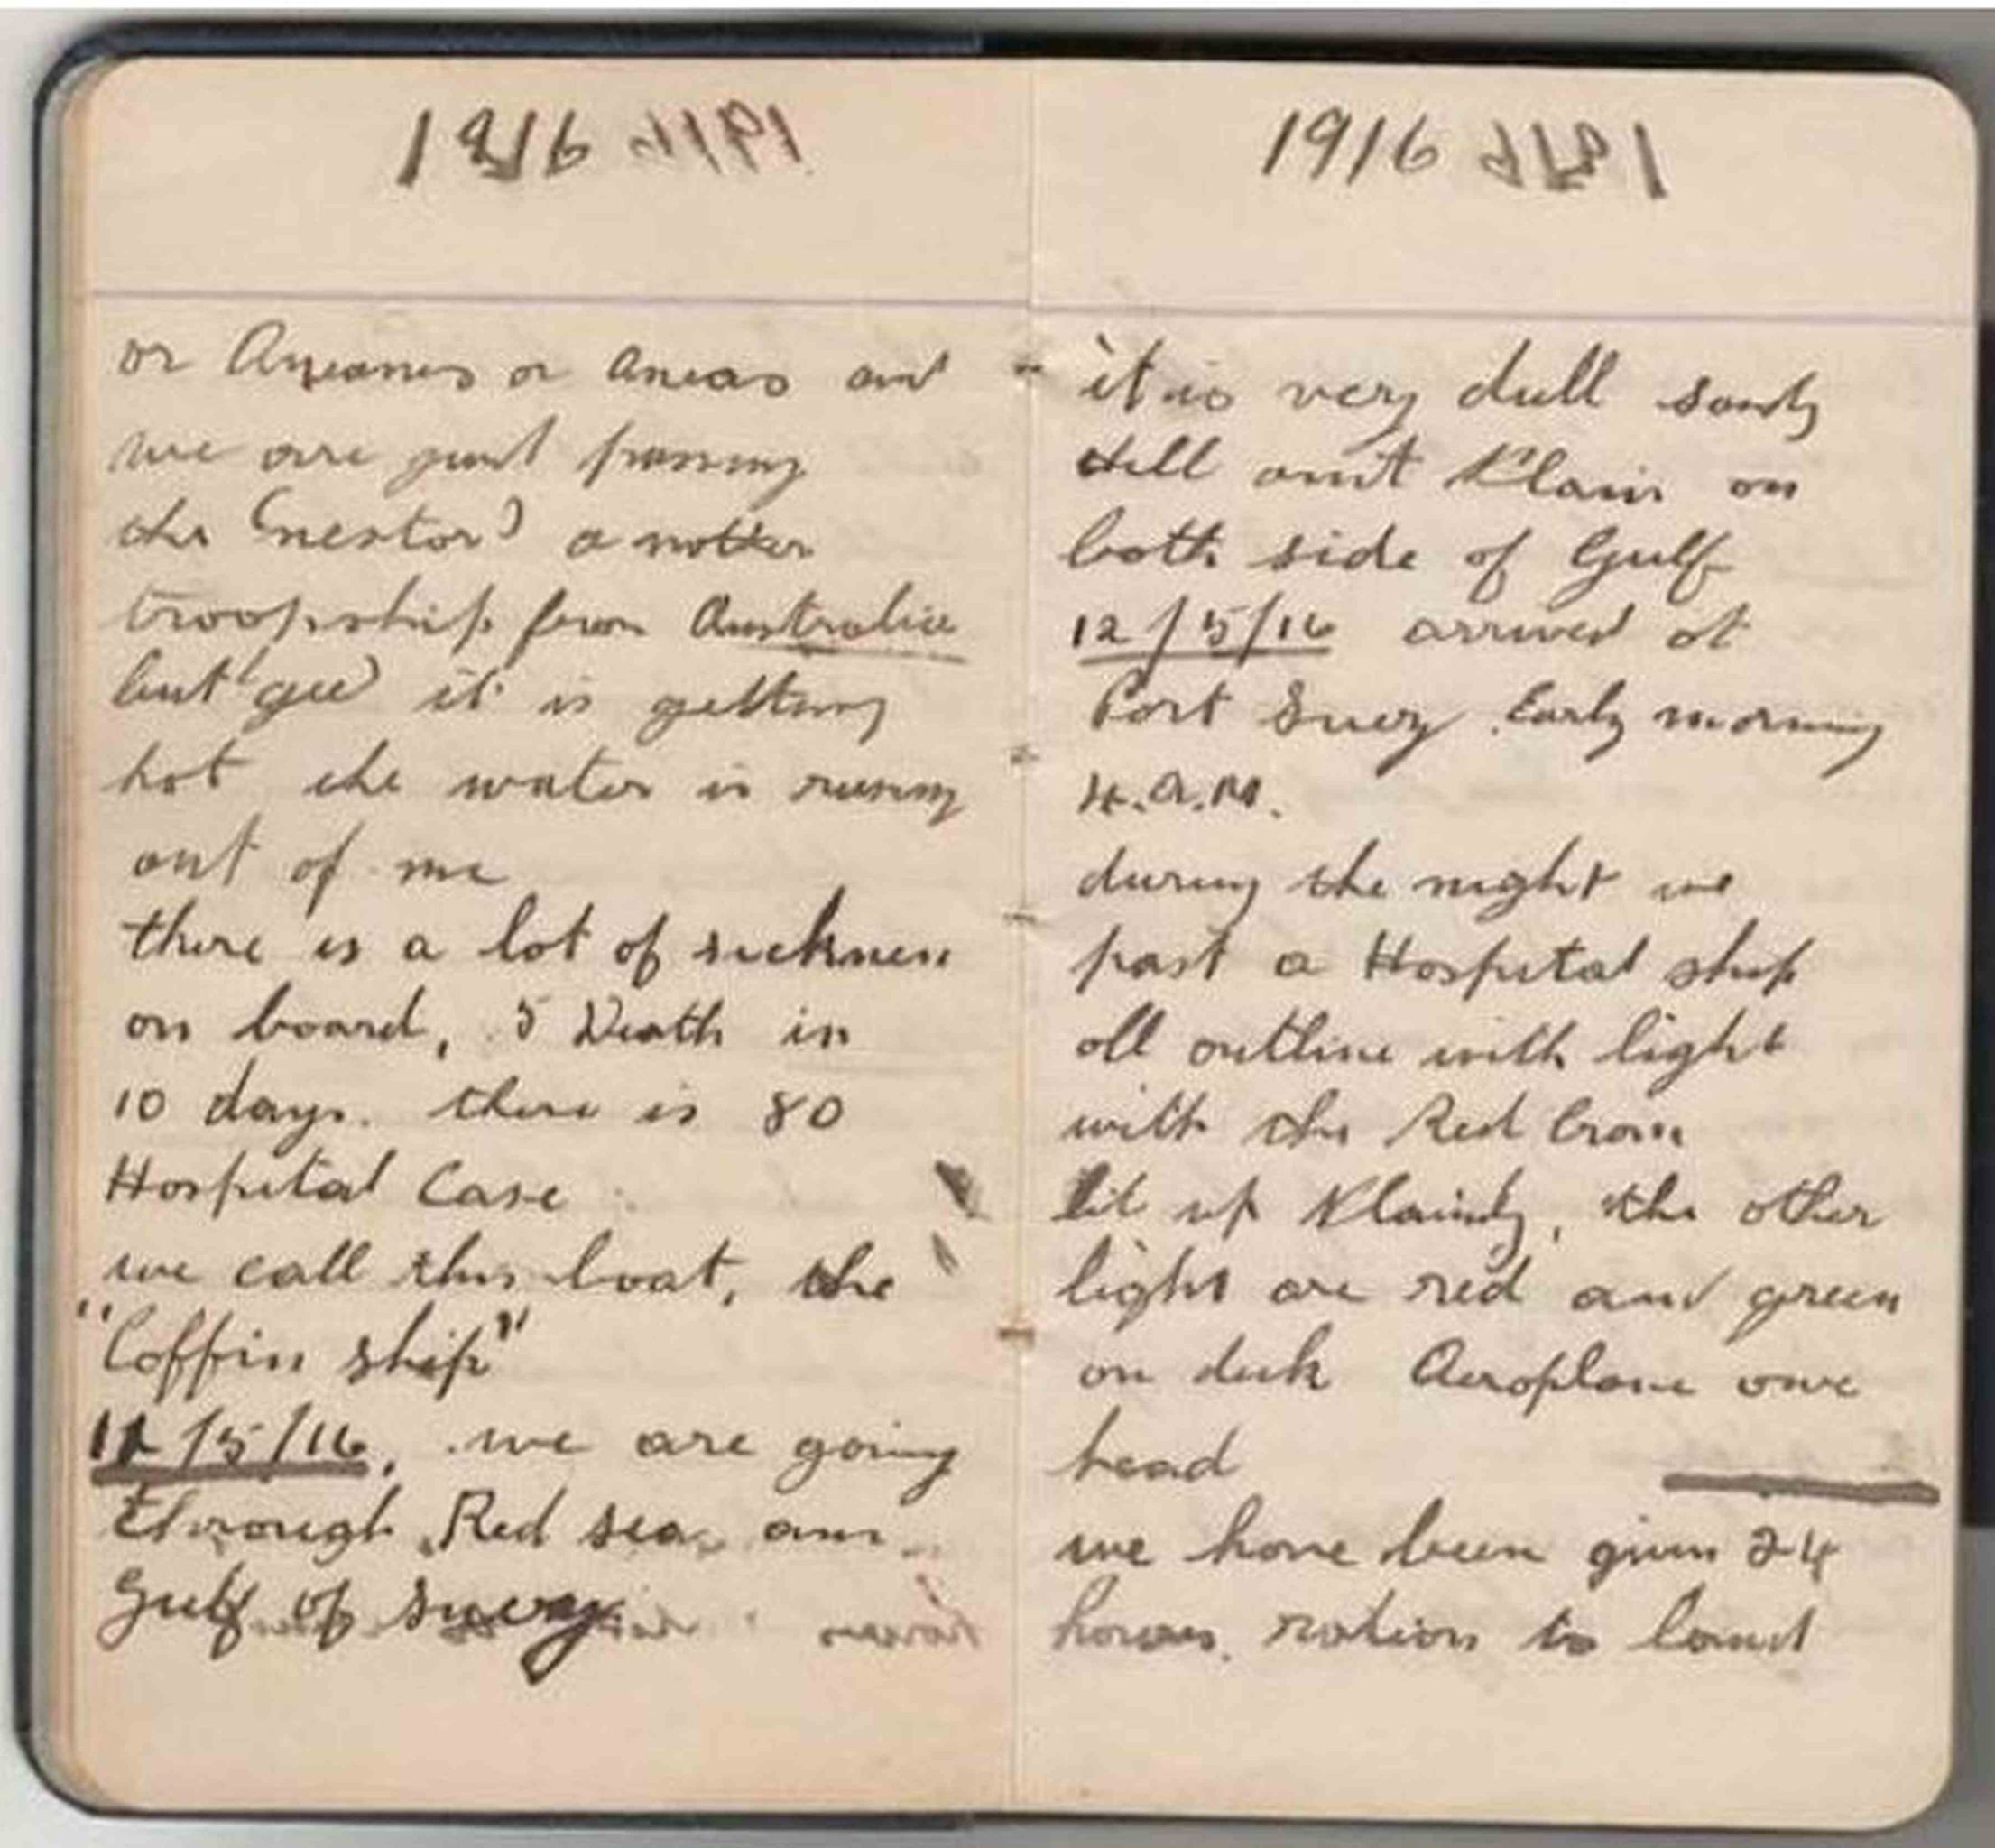 1916
or or Aneas and
we are just passing
the (nestor) a nother
troopship from Australia
but 'gee' it is getting
hot the water is runing
out of me
there is a lot of sickness
on board, 5 Death in
10 days. there is 80
Hospital Case
we call this boat, the
"Coffin ship"
/5/16, we are going
through Red sea, and
Gulf of Suez
1916
it is very dull sandy
Hill and Plain on
both side of Gulf
12/5/16 arrived at
Port Suez. Early morning
4.A.M.
during the night we
past a Hospital ship
all outline with light
with the Red Cross
lit up Plainly, the other
light are red and green
on deck Aeroplane ove
head
we have been given 24
hours. ration to land